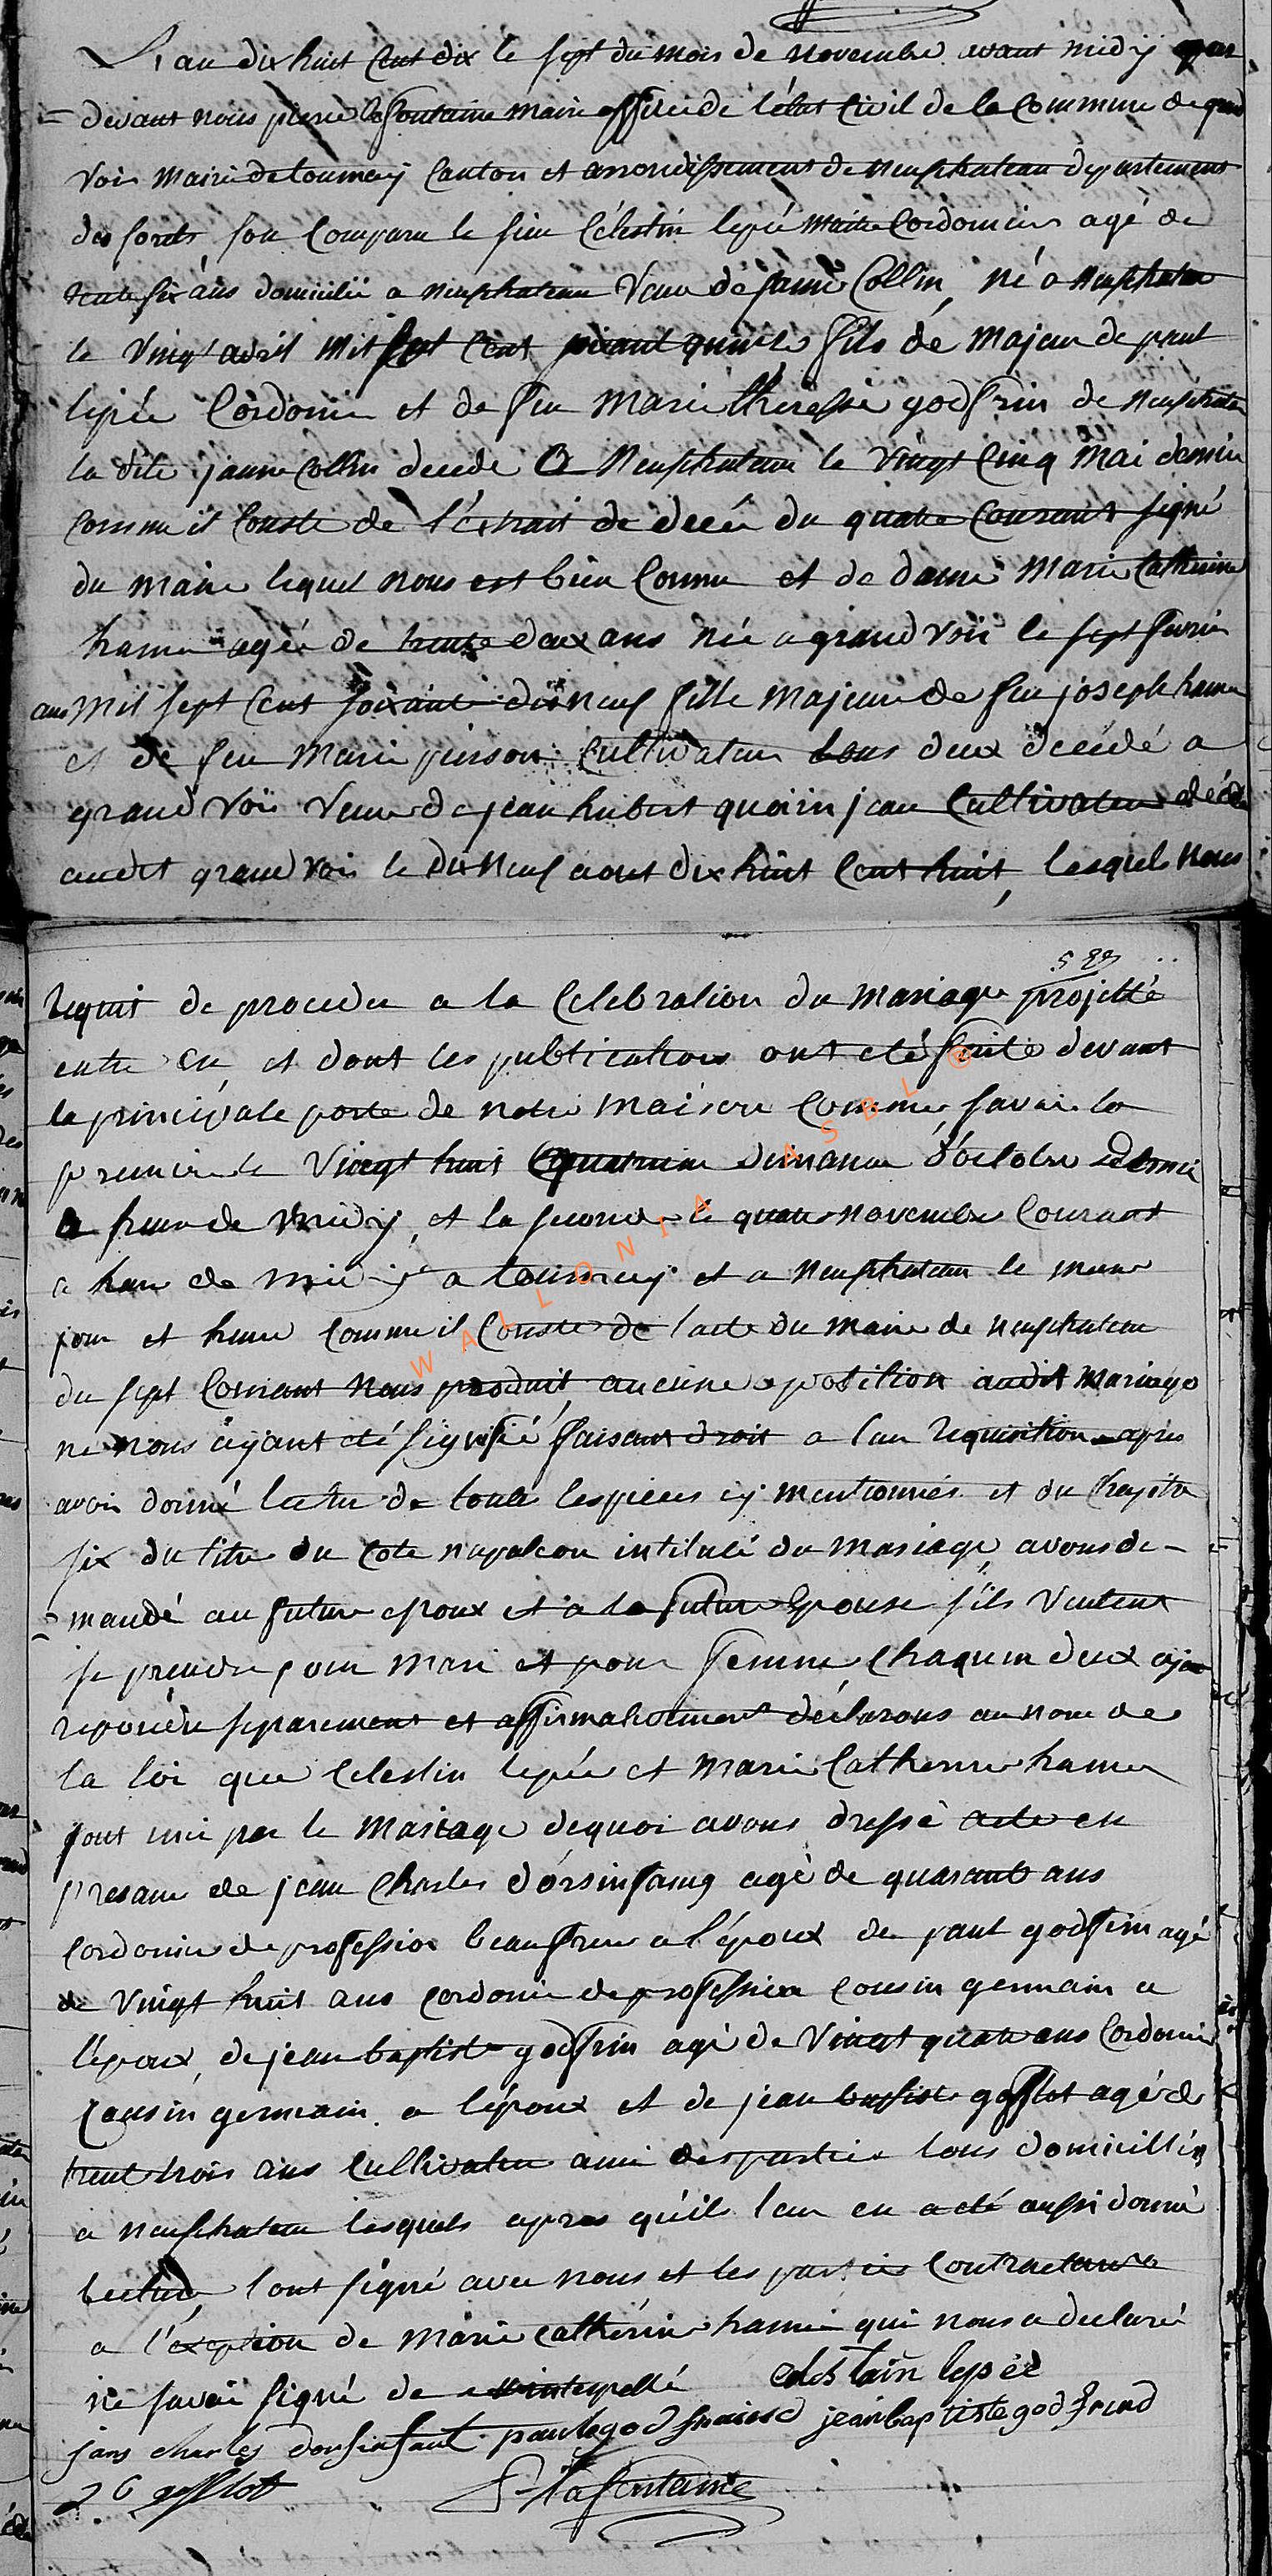 L'an dix huit cent dix le sept du mois de novembre avant midy par
= devant nous pierre lafontaine maire officier de l'état Civil de la Commune de grand
voir mairie de tournay Canton et arrondissement de neufchateau departement
des forets son Comparu le sieur Célestin lepée maitre Cordonnier agé de
trente six ans domicilié a neufchateau Veuf de janne Collin, né a neufchateau
le vingt avril mil sept Cent soixant quinze fils de Majeur de paul
lepée Cordonier et de feu marie theresse godfrin de neufchateau
la dite janne Collin decedé a neufchateau le vingt Cinq mai dernier
comme il Conste de l'éxtrait de decée du quatre Courant signé
du maire lequel nous est bien Connu et de dame Marie Catherine
hanne agée de trente deux ans née a grand voir le sept fevrier
ans mil sept Cent soixante dixneuf fille majeure de feu joseph hanne
et de feu Marie pierson Cultivateur tous deux decédé a
grand voir veuve de jean hubert quoirin jean Cultivateur décédé
audit grand voir le dix neuf aout dix huit Cent huit, lesquels nous
requit de proceder a la Celebration du mariage projetté
entre eu et dont les publications ont eté faite devant
la principale porte de notre maison Commune savoir la
premiere le vingt huit quatrieme dimance d'octobre dernié
a heure de midy, et la seconde le quatre novembre Courant
a heure de midy a tournay et a neufchateau le meme
jour et heure comme il Conste de l'acte du maire de neufchateau
du sept Courant nous produit aucune opotition audit mariage
ne nous ayant eté signifié faisant droit a leur requisition apres
avoir donné lectur de toute les pieces cy mentionnées et du Chapitre
six du titre du Code napoleon intitulé du mariage, avons de-
mandé au futur epoux et a la future Epouse s'ils veulent
se prendre pour mari et pour femme chaqun deux ayant
reponder separement et affirmativement déclarons au nom de
la loi que Celestin lepée et Marie Catherine hanne
sont uni par le mariage dequoi avons dressé acte en
presance de jean Charles dorsinfang agé de quarante ans
Cordonier de profession beau frere a l'époux de paul godfrin agé
de vingt huit ans cordonier de profession Cousin germain a
l'epoux, de jean baptiste godfrin agé de vingt quatre ans Cordonier
Cousin germain a l'époux et de jean baptiste gofflot agé de
trent trois ans Cultivateur ami des parties tous domicillié
a neufchateau lesquels apres qu'il leur en a eté aussi donné
lecture, l'ont signé avec nous et les parties Contractante
a l'exeption de marie catherine hanne qui nous a declaré
ne savoir signé de interpellé Celestain lepée
jans charles dorsinfant paul godfrind jean baptiste godfrind
J b gofflot P lafontaine
WALLONIA ASBL ®